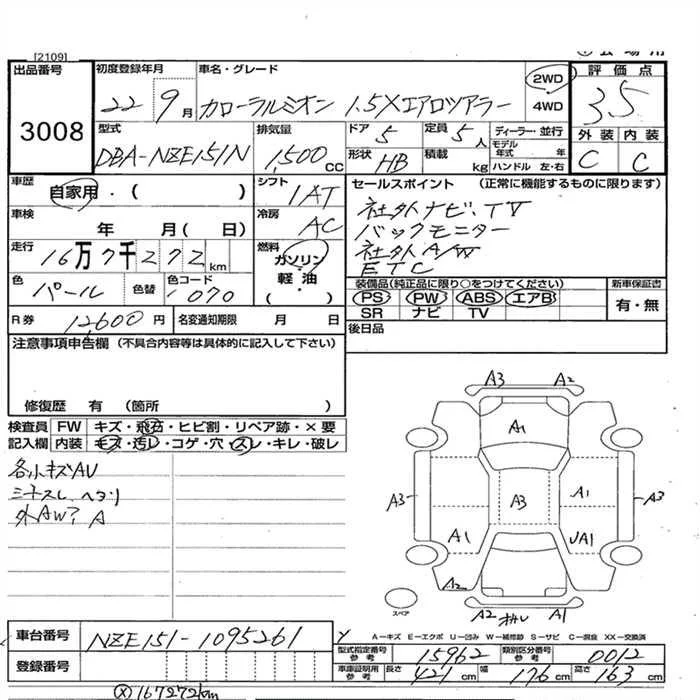 [2109]
出品番号
3008
初度登録年月
22 9月
車名・グレード
カローラルミオン 1.5Xエアロツアラー
2WD
4WD
評価点
3.5
外装 内装
C C
型式
DBA-NZE151N
排気量
1,500 CC
ドア 5
定員 5人
形状 HB
積載 kg
ディーラー・並行
モデル年式 年
ハンドル 左・右
車歴
自家用・( )
シフト
IAT
セールスポイント (正常に機能するものに限ります)
社外ナビ、TV
バックモニター
社外A/W
ETC
車検
年 月( 日)
冷房
AC
走行
16万7千272km
燃料
ガソリン
軽油
( ・ )
色
パール
色替
色コード
1070
装備品(純正品に限り○をつけてください)
PS PW ABS エアB
SR ナビ TV
新車保証書
有・無
R券 12,600円
名変通知期限 月 日
後日品
注意事項申告欄 (不具合内容等は具体的に記入して下さい)
修復歴 有 (箇所 )
検査員記入欄
FW キズ・飛石・ヒビ割・リペア跡・×要
内装 キズ・汚レ・コゲ・穴・スレ・キレ・破レ
各小キズAU
外AW? A
A3 A2
A1
A3 A3 A1 A3
A1 UA1
A2
スペア
A2 A1
A-キズ E-エクボ U-凹み W-補修跡 S-サビ C-腐食 XX-交換済
車台番号
NZE151-1095261
登録番号
型式指定番号参考 15962
類別区分番号参考 0012
車庫証明用参考
長さ 421cm
幅 176cm
高さ 163cm
167272km